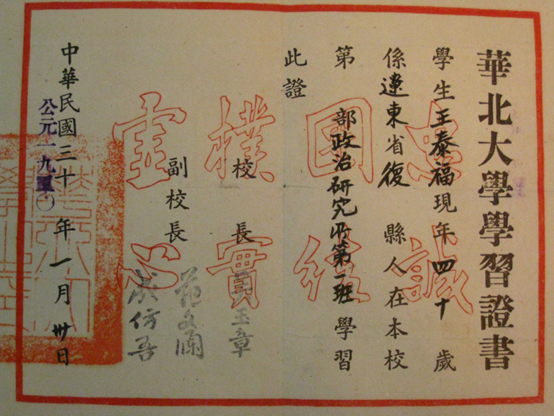 華北大學學習證書
學生王泰福現年四十歲
係遼東省復縣人在本校
第 部政治研究所第一班學習
此證
校長 吳玉章
副校長 范文瀾
成仿吾
中華民國三十 年一月卅日
公元一九五〇
忠誠
團結
樸實
虛心